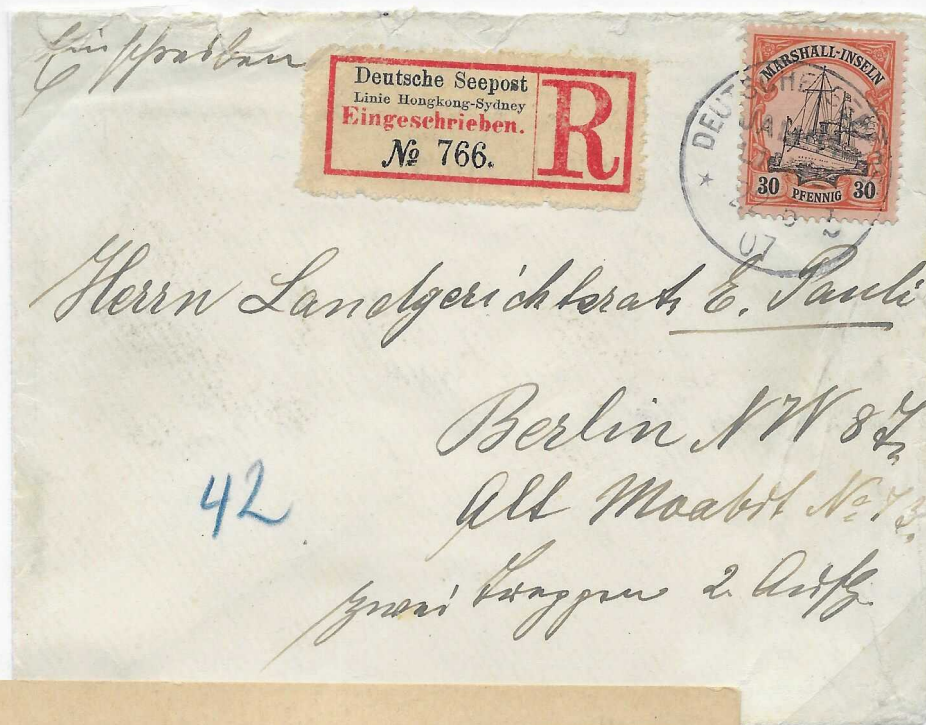 Einschreiben
Deutsche Seepost
Linie Hongkong-Sydney
Eingeschrieben.
№ 766.
R
MARSHALL-INSELN
30 PFENNIG 30
DEUTSCHE SEEPOST
07
Herrn Landgerichtsrath E. Pauli
Berlin NW
Alt Moabit No 73.
42
zwei Treppen 2. Aufg.